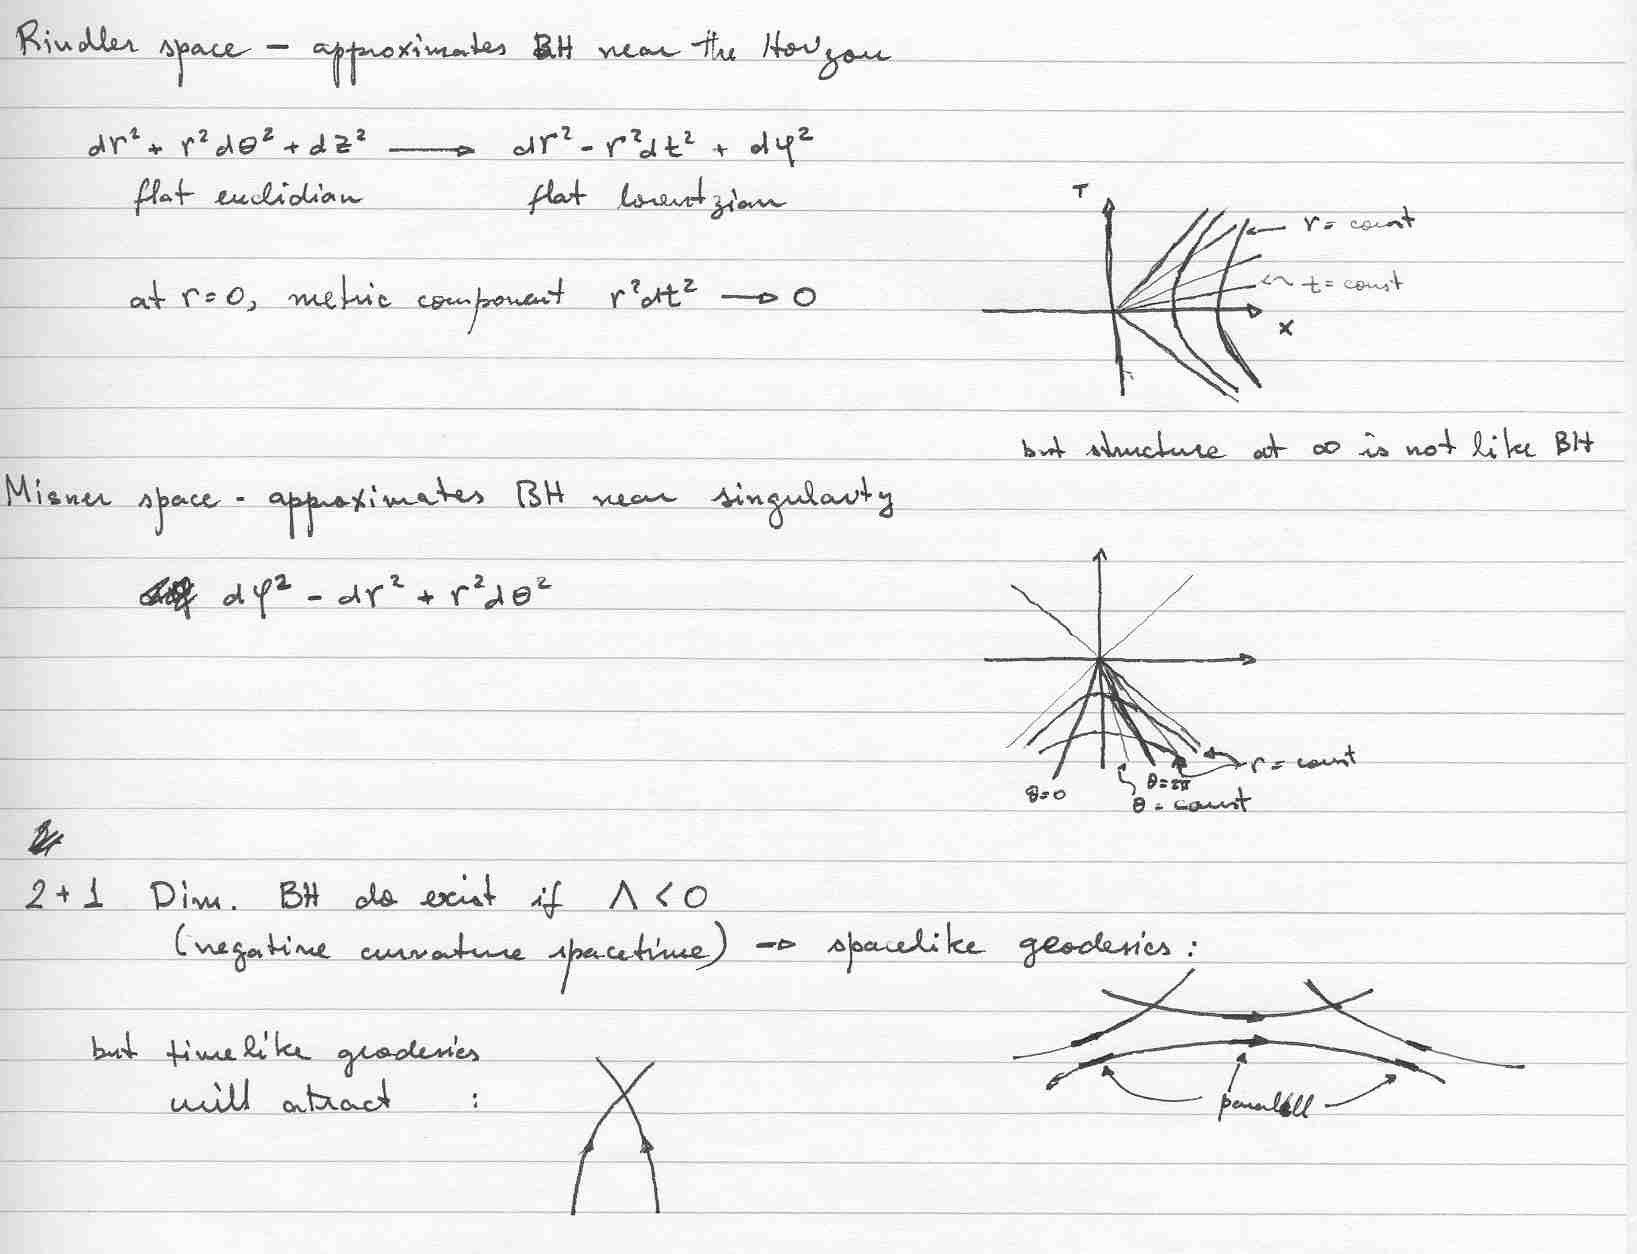 Rindler space – approximates BH near the Horizon
dr² + r²dθ² + dz² ⟶ dr² - r²dt² + dφ²
flat euclidian flat lorentzian
T
r = const
at r=0, metric component r²dt² → 0
t = const
X
but structure at ∞ is not like BH
Misner space - approximates BH near singularity
dφ² - dr² + r²dθ²
r = const
θ=0
θ=2π
θ = const
2+1 Dim. BH do exist if Λ < 0
(negative curvature spacetime) → spacelike geodesics :
but timelike geodesics
will atract :
parallell